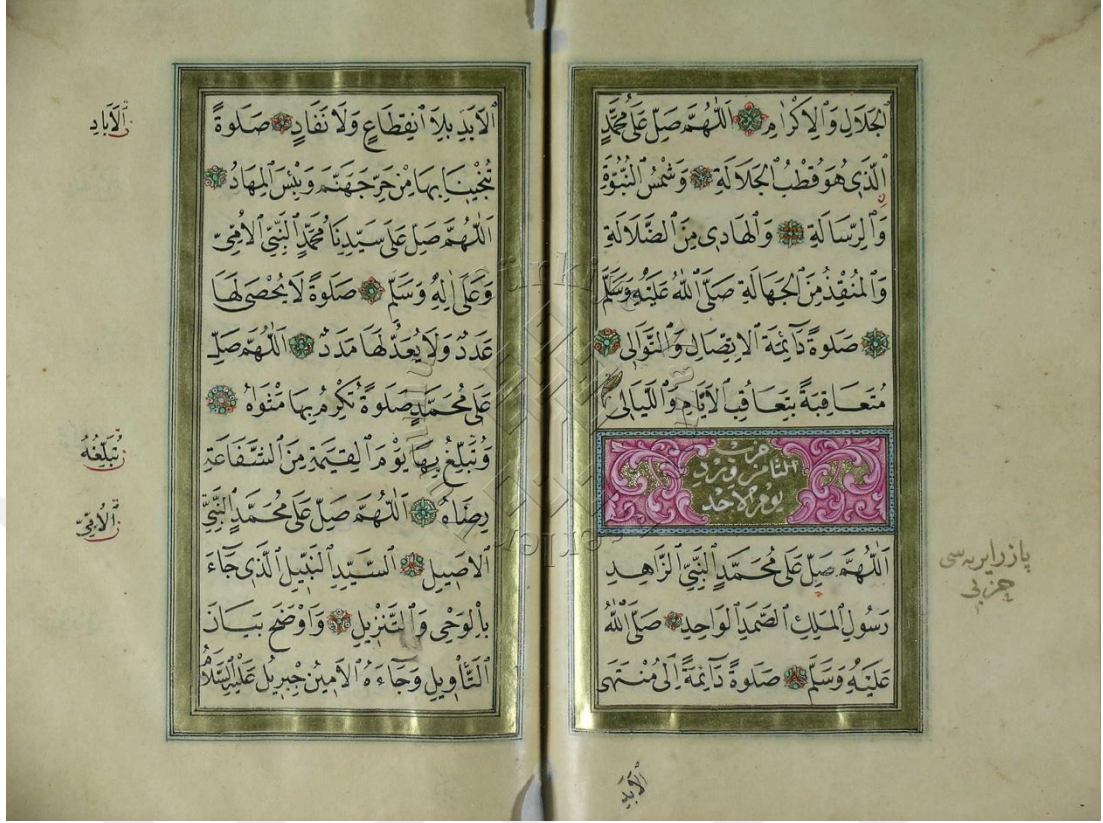 الْجَلَالِ وَالْإِكْرَامِ اَللّٰهُمَّ صَلِّ عَلٰى مُحَمَّدٍ
الَّذِى هُوَ قُطْبُ الْجَلَالَةِ وَشَمْسُ النُّبُوَّةِ
وَالرِّسَالَةِ وَالْهَادِى مِنَ الضَّلَالَةِ
وَالْمُنْقِذُ مِنَ الْجَهَالَةِ صَلَّى اللّٰهُ عَلَيْهِ وَسَلَّمَ
صَلٰوةً دَآئِمَةَ الْاِتِّصَالِ وَالتَّوَالِى
مُتَعَاقِبَةً بِتَعَاقُبِ الْاَيَّامِ وَاللَّيَالِى
حزب
الثامن ورد
يوم الاحد
اَللّٰهُمَّ صَلِّ عَلٰى مُحَمَّدٍ النَّبِىِّ الزَّاهِدِ
رَسُولِ الْمَلِكِ الصَّمَدِ الْوَاحِدِ صَلَّى اللّٰهُ
عَلَيْهِ وَسَلَّمَ صَلٰوةً دَآئِمَةً اِلٰى مُنْتَهَى
بازار ايرته سى
حزبى
الْاَبَدِ
الْاَبَدِ بِلَا انْقِطَاعٍ وَلَا نَفَادٍ صَلٰوةً
تُنْجِينَا بِهَا مِنْ حَرِّ جَهَنَّمَ وَبِئْسَ الْمِهَادُ
اَللّٰهُمَّ صَلِّ عَلٰى سَيِّدِنَا مُحَمَّدٍ النَّبِىِّ الْاُمِّىِّ
وَعَلٰى اٰلِهِ وَسَلِّمْ صَلٰوةً لَا يُحْصٰى لَهَا
عَدَدٌ وَلَا يُعَدُّ لَهَا مَدَدٌ اَللّٰهُمَّ صَلِّ
عَلٰى مُحَمَّدٍ صَلٰوةً تُكْرِمُ بِهَا مَثْوَاهُ
وَتُبَلِّغُ بِهَا يَوْمَ الْقِيٰمَةِ مِنَ الشَّفَاعَةِ
رِضَاهُ اَللّٰهُمَّ صَلِّ عَلٰى مُحَمَّدٍ النَّبِىِّ
الْاَصِيلِ السَّيِّدِ النَّبِيلِ الَّذِى جَآءَ
بِالْوَحْىِ وَالتَّنْزِيلِ وَاَوْضَحَ بَيَانَ
التَّأْوِيلِ وَجَآءَهُ الْاَمِينُ جِبْرِيلُ عَلَيْهِ السَّلَامُ
الْاٰبَادِ
تُبَلِّغُهُ
الْاُمِّىِّ